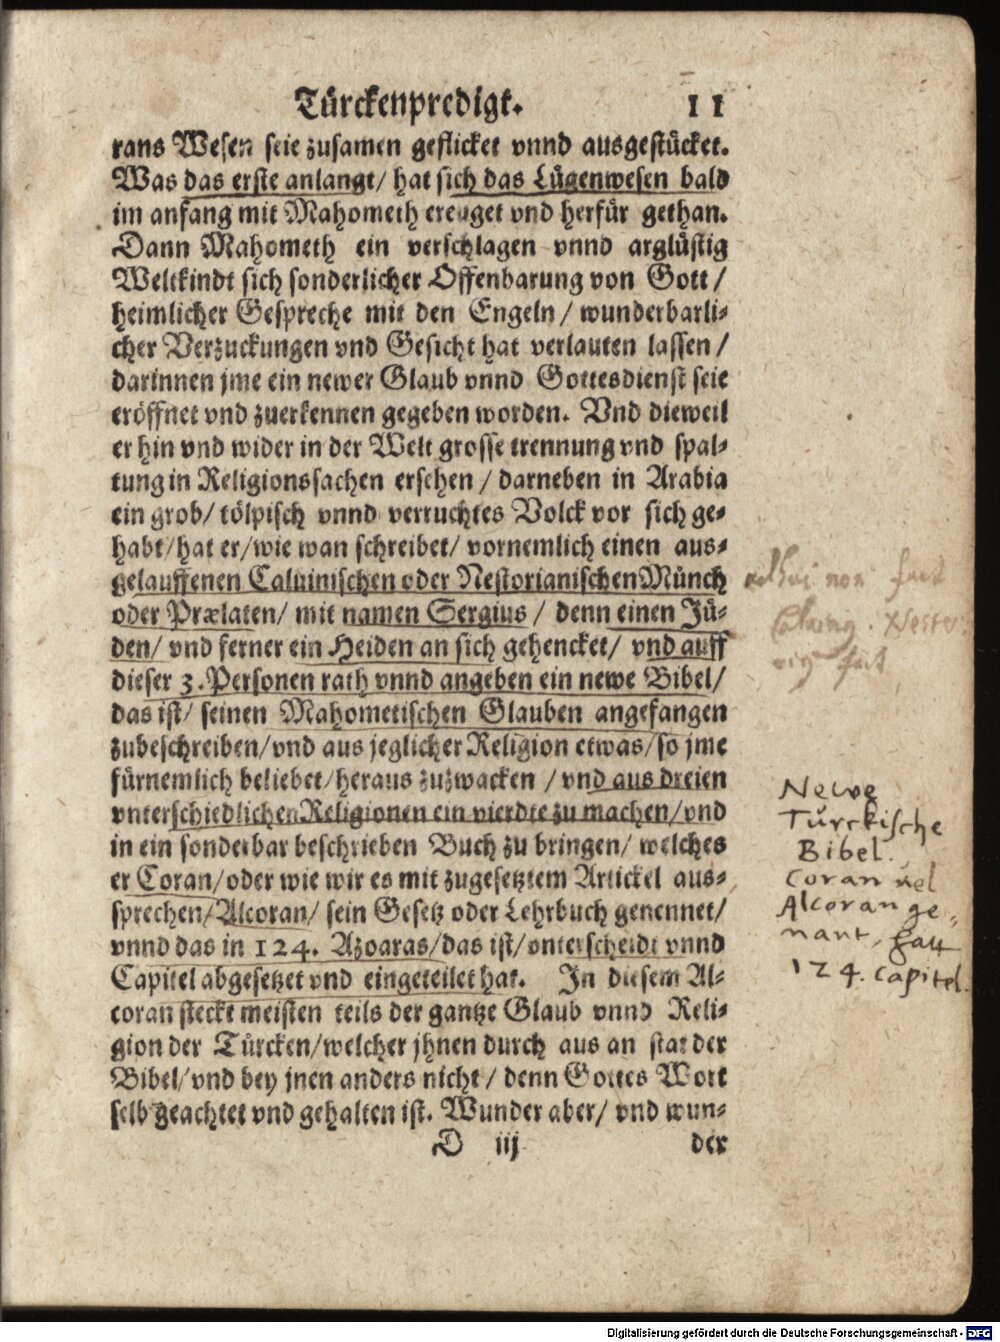 Türckenpredigt. 11
rans Wesen seie zusamen geflicket vnnd ausgestücket.
Was das erste anlangt/ hat sich das Lügenwesen bald
im anfang mit Mahometh ereuget vnd herfür gethan.
Dann Mahometh ein verschlagen vnnd arglüstig
Weltkindt sich sonderlicher Offenbarung von Gott /
heimlicher Gespreche mit den Engeln / wunderbarli-
cher Verzuckungen vnd Gesicht hat verlauten lassen /
darinnen jme ein newer Glaub vnnd Gottesdienst seie
eröffnet vnd zuerkennen gegeben worden. Vnd dieweil
er hin vnd wider in der Welt grosse trennung vnd spal-
tung in Religionssachen ersehen / darneben in Arabia
ein grob/ tölpisch vnnd verruchtes Volck vor sich ge-
habt/ hat er/ wie wan schreibet/ vornemlich einen aus-
gelauffenen Caluinischen oder Nestorianischen Münch
oder Prælaten/ mit namen Sergius / denn einen Jü-
den/ vnd ferner ein Heiden an sich gehencket/ vnd auff
dieser 3. Personen rath vnnd angeben ein newe Bibel/
das ist/ seinen Mahometischen Glauben angefangen
zubeschreiben/ vnd aus jeglicher Religion etwas/ so jme
fürnemlich beliebet/ heraus zuzwacken / vnd aus dreien
vnterschiedlichen Religionen ein vierdte zu machen/ vnd
in ein sonderbar beschrieben Buch zu bringen/ welches
er Coran/ oder wie wir es mit zugesetztem Artickel aus-
sprechen/ Alcoran/ sein Gesetz oder Lehrbuch genennet/
vnnd das in 124. Azoaras/ das ist/ vnterscheidt vnnd
Capitel abgesetzet vnd eingeteilet hat. In diesem Al-
coran steckt meisten teils der gantze Glaub vnnd Reli-
gion der Türcken/ welcher jhnen durch aus an stat der
Bibel/ vnd bey jnen anders nicht / denn Gottes Wort
selb geachtet vnd gehalten ist. Wunder aber/ vnd wun-
D iij der
non
Newe
Türckische
Bibel.
Coran vel
Alcoran ge-
nant, hatt
124. Capitel.
Digitalisierung gefördert durch die Deutsche Forschungsgemeinschaft - DFG